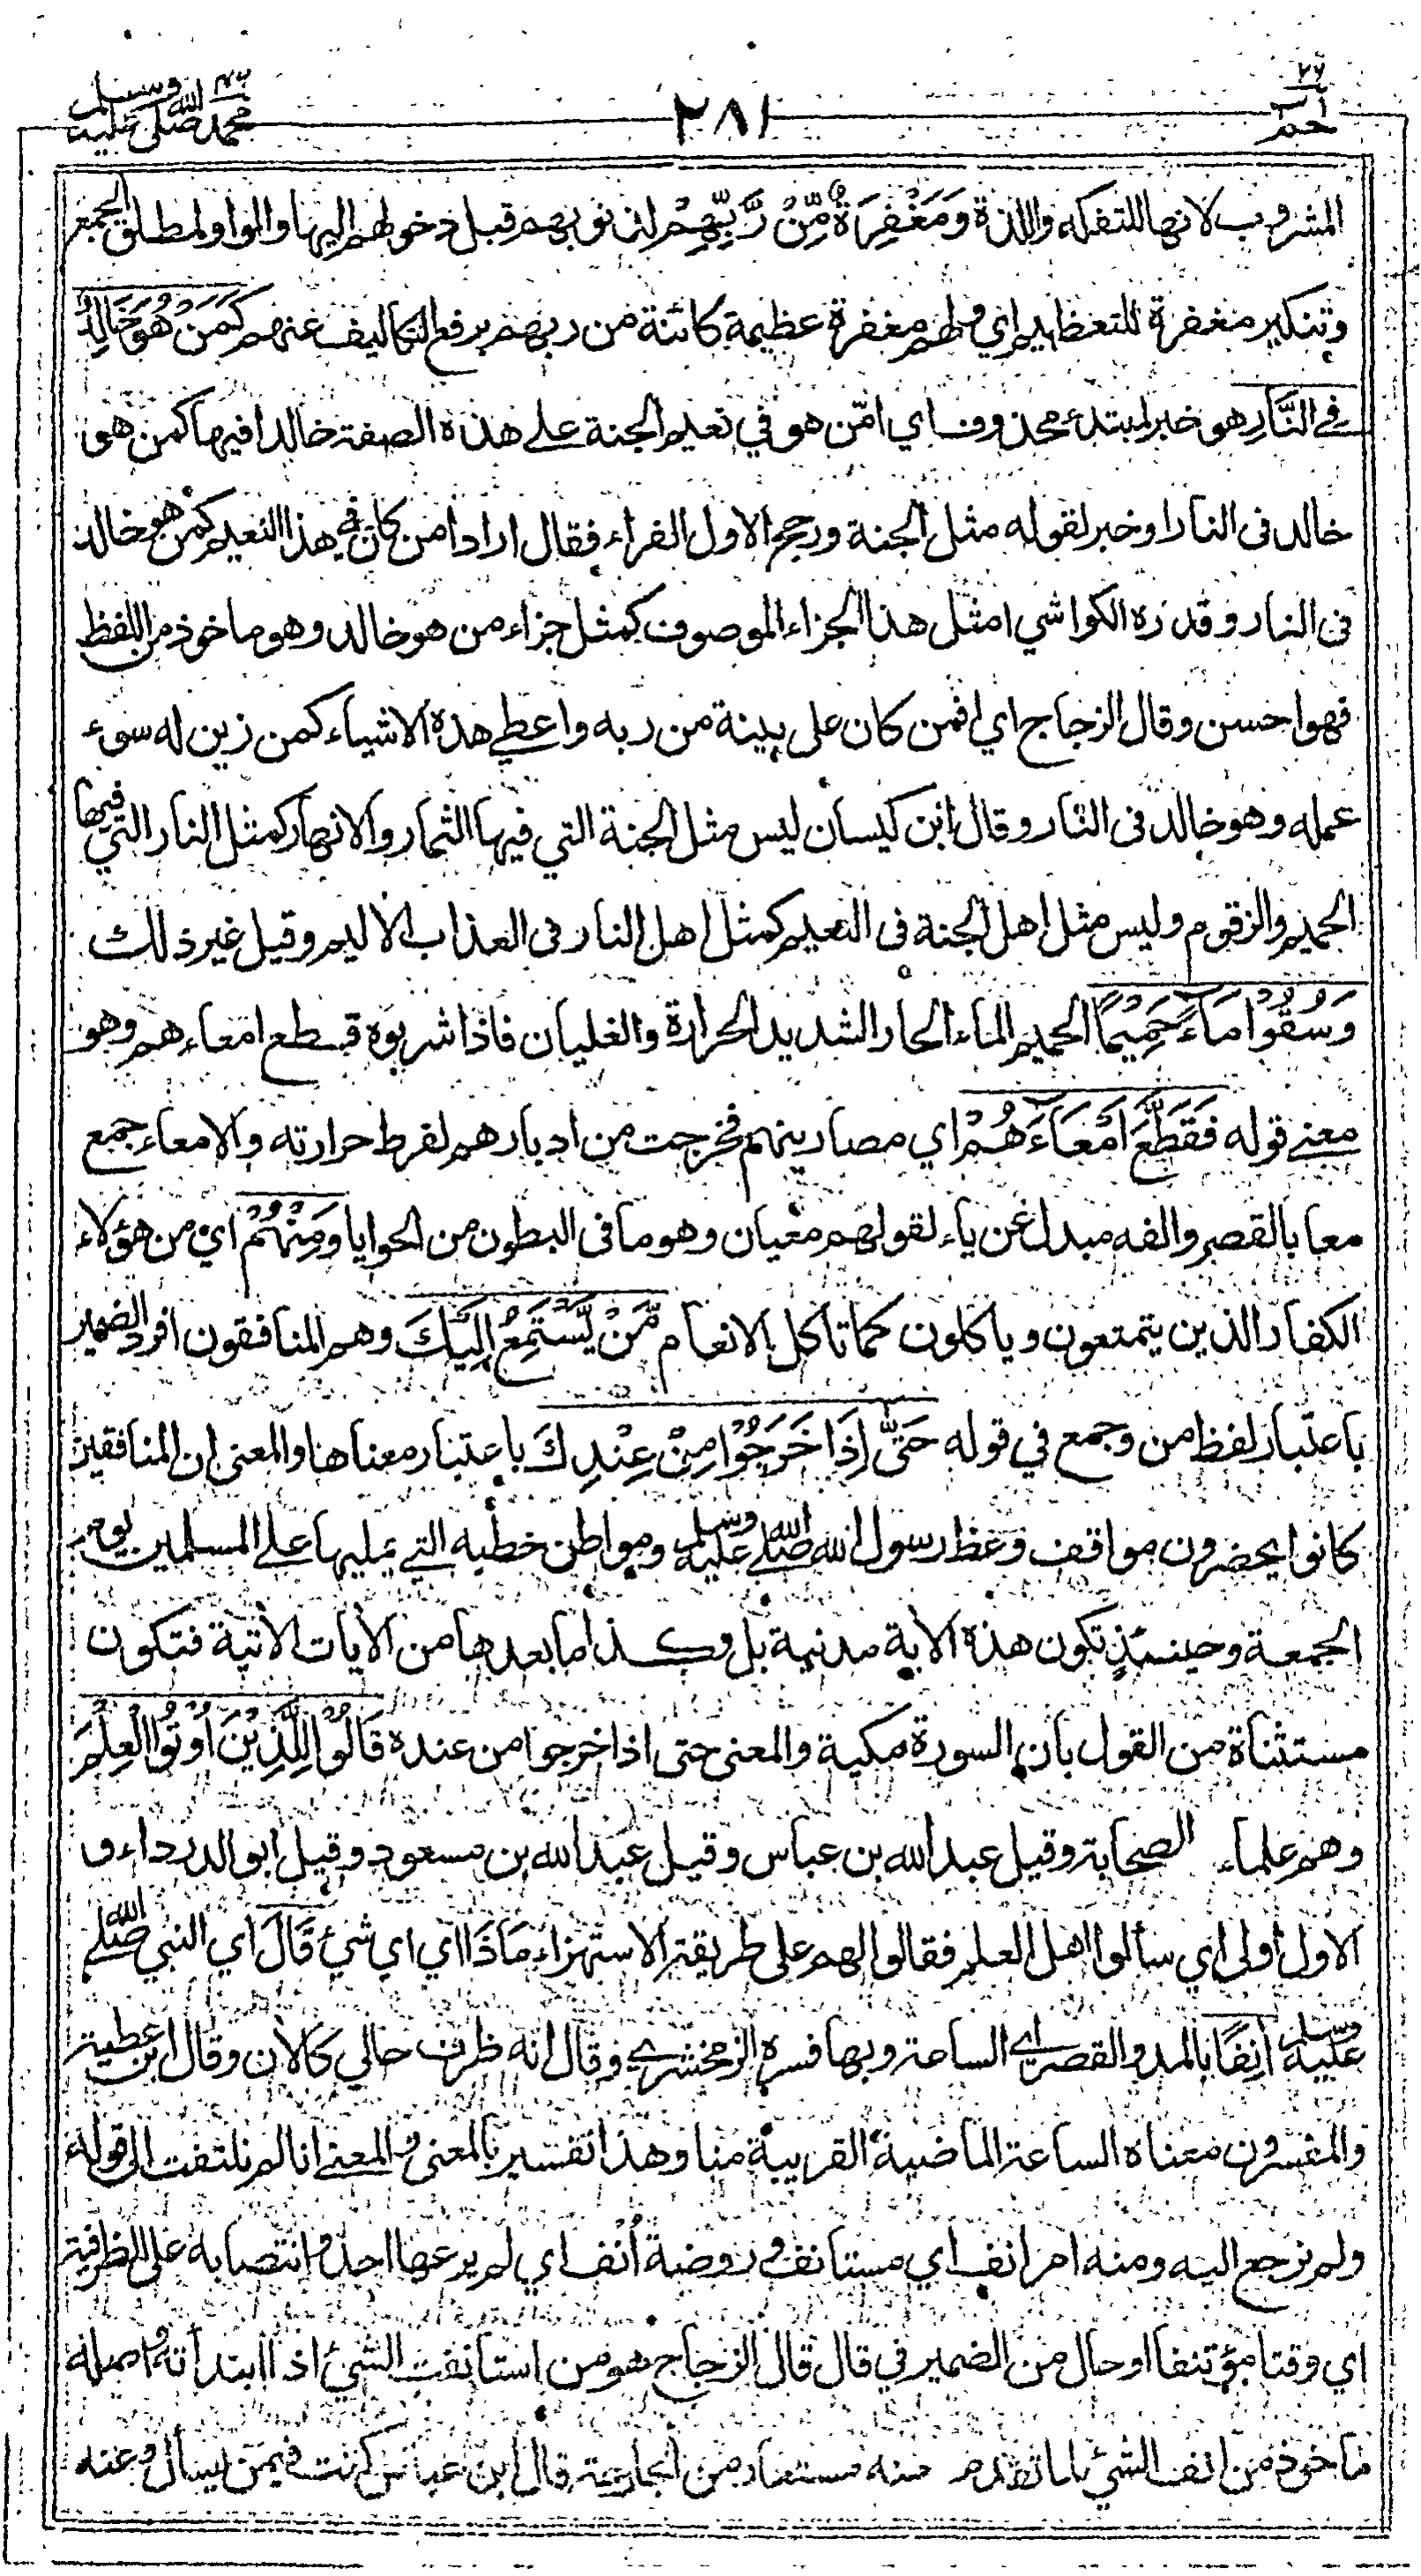 حم ٢٦
٢٨١
محمد صلى الله عليه وسلم ٤٧
المشروب لانها للتفكه واللذة وَمَغْفِرَةٌ مِّنْ رَّبِّهِمْ لذنوبهم قبل دخولهم اليها والواو لمطلق الجمع
وتنكير مغفرة للتعظيم اي ولهم مغفرة عظيمة كائنة من ربهم برفع التكاليف عنهم كَمَنْ هُوَ خَالِدٌ
فِي النَّارِ هو خبر لمبتدء محذوف اي امّن هو في نعيم الجنة على هذه الصفة خالدا فيها كمن هو
خالد فى النار او خبر لقوله مثل الجنة ورجح الاول الفراء فقال اراد امن كان في هذا النعيم كمن هو خالد
فى النار وقدره الكواشي امثل هذا الجزاء الموصوف كمثل جزاء من هو خالد وهو ماخوذ من اللفظ
فهو احسن وقال الزجاج اي افمن كان على بينة من ربه واعطي هذه الاشياء كمن زين له سوء
عمله وهو خالد فى النار وقال ابن كيسان ليس مثل الجنة التي فيها الثمار والانهار كمثل النار التي فيها
الحميم والزقوم وليس مثل اهل الجنة فى النعيم كمثل اهل النار فى العذاب الاليم وقيل غير ذلك
وَسُقُوْا مَآءً حَمِيْمًا الحميم الماء الحار الشديد الحرارة والغليان فاذا شربوه قطع امعاءهم وهو
معنے قوله فَقَطَّعَ اَمْعَآءَهُمْ اي مصارينهم فخرجت من ادبارهم لفرط حرارته والامعاء جمع
معا بالقصر والفه مبدل عن ياء لقولهم معيان وهو ما فى البطون من الحوايا وَمِنْهُمْ اي من هؤلاء
الكفار الذين يتمتعون وياكلون كما تاكل الانعام مَّنْ يَّسْتَمِعُ اِلَيْكَ وهم المنافقون افرد الضمير
باعتبار لفظ من وجمع في قوله حَتّٰى اِذَا خَرَجُوْا مِنْ عِنْدِكَ باعتبار معناها والمعنى ان المنافقين
كانوا يحضرون مواقف وعظ رسول الله صلى الله عليه وسلم ومواطن خطبه التي يمليها على المسلمين يوم
الجمعة وحينئذ تكون هذه الاية مدنية بل وكذا ما بعدها من الأيات الأتية فتكون
مستثناة من القول بان السورة مكية والمعنى حتى اذا خرجوا من عنده قَالُوْا لِلَّذِيْنَ اُوْتُوا الْعِلْمَ
وهم علماء الصحابة وقيل عبد الله بن عباس وقيل عبد الله بن مسعود وقيل ابو الدرداء و
الاول أولى اي سألوا اهل العلم فقالوا لهم على طريقة الاستهزاء مَاذَا اي اي شئ قَالَ اي النبي صلى الله
عليه وسلم اٰنِفًا بالمد والقصر اى الساعة وبها فسره الزمخشرے وقال انه ظرف حالي كالأن وقال ابن عطية
والمفسرون معناه الساعة الماضية القريبة منا وهذا تفسير بالمعنى والمعنے انا لم نلتفت الى قوله
ولم نرجع اليه ومنه امر انف اي مستانف وروضة اُنُف اي لم يرعها احد وانتصابه على الظرفية
اي وقتا مؤتنفا او حال من الضمير في قال قال الزجاج هو من استانفت الشئ اذا ابتدأته واصله
ماخوذ من انف الشئ لما تقدم منه مستعار من الجارحة قال ابن عباس كنت فيمن يسأل وعنه